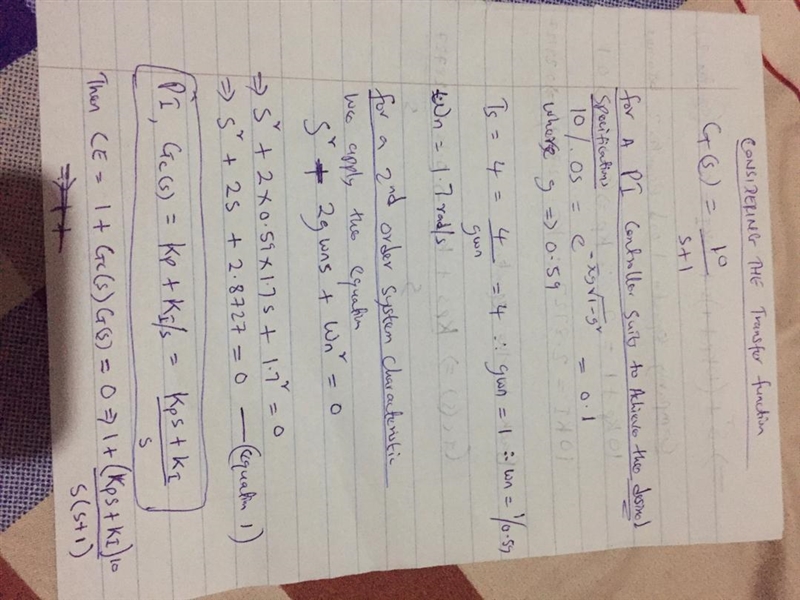 CONSIDERING THE Transfer function
G(s) = 10
s+1
for A PI Controller Suits to Achieve the desired
Specifications
10%.OS = e^-πg√1-g² = 0.1
where g => 0.59
Ts = 4 = 4/gwn = 4 ∴ gwn = 1 ∴ wn = 1/0.59
Wn = 1.7 rad/s
for a 2nd order System characteristic
we apply the equation
S² + 2gwns + Wn² = 0
=> S² + 2×0.59×1.7s + 1.7² = 0
=> S² + 2s + 2.8727 = 0 — (equatin 1)
PI, Gc(s) = Kp + KI/s = Kps + KI
s
Then CE = 1 + Gc(s)G(s) = 0 => 1 + (Kps + KI)10
s(s+1)